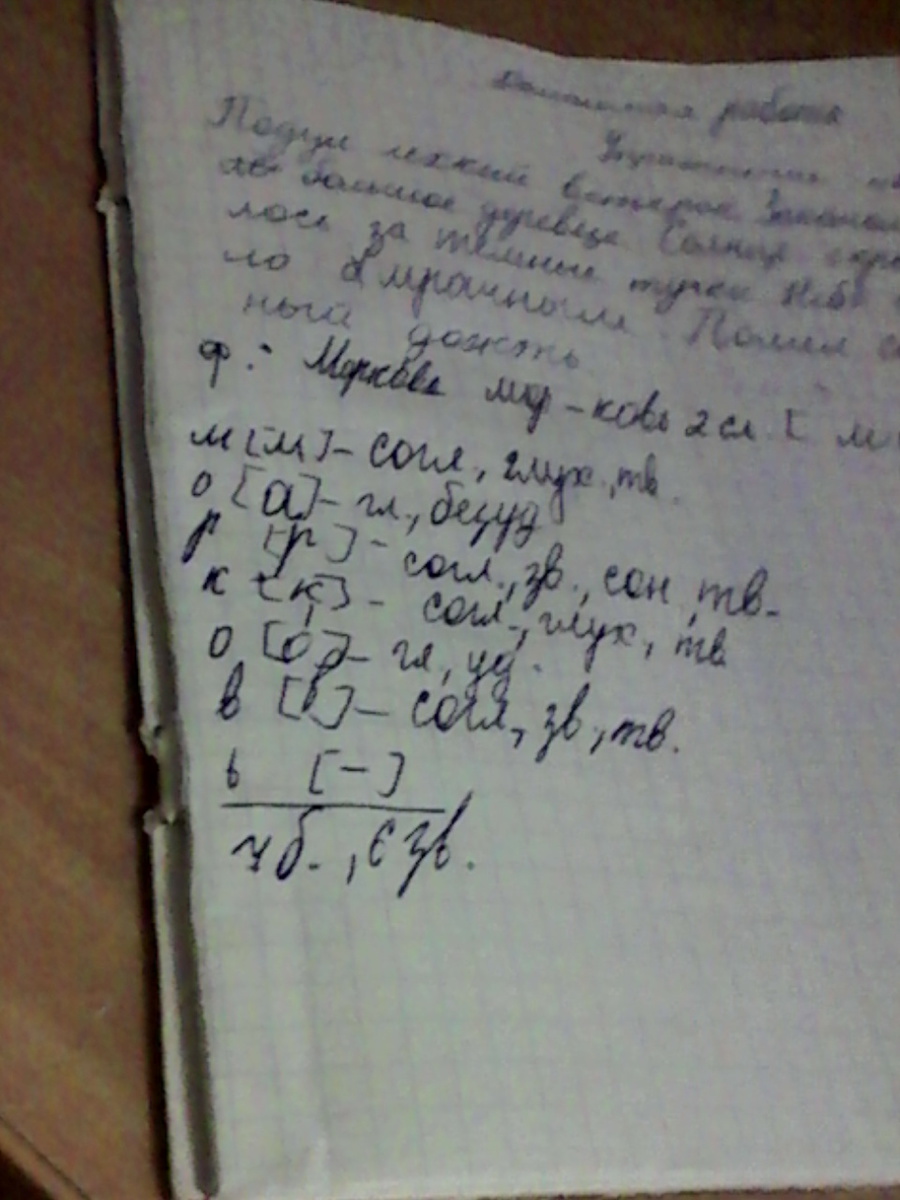 Домашняя работа
Упражнение
Подул лехкий ветерок Закачал
ло большое деревце Солнце скры
лось за тёмные тучки Небо
ло мрачным. Полил
ньга дожть
ф: Морковь мор - ковь 2 сл. [ м
м [м] - согл, глух., тв.
о [а] - гл, безуд
р [р] - согл., зв., сон, тв.
к [к] - согл., глух, тв
о [о́] - гл, уд.
в [в] - согл, зв, тв.
ь [-]
7 б., 6 зв.